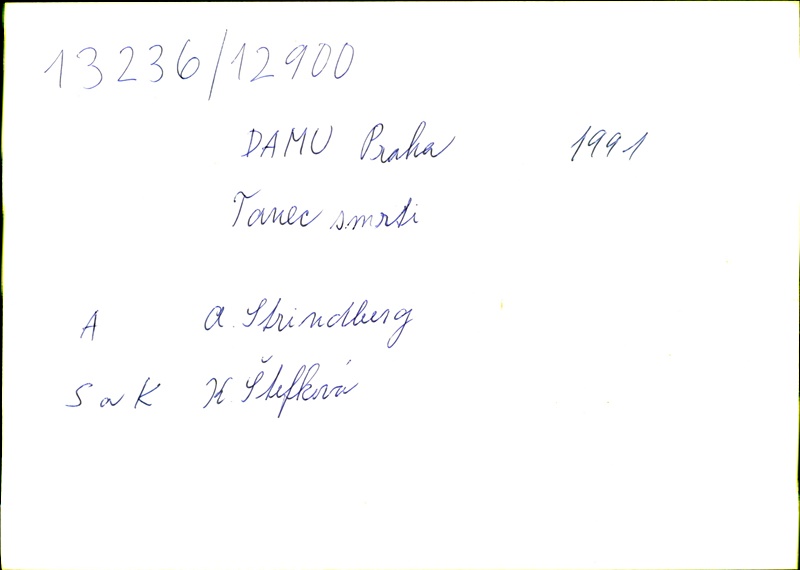 13236/12900
DAMU Praha 1991
Tanec smrti
A A. Strindberg
S a K K. Štefková